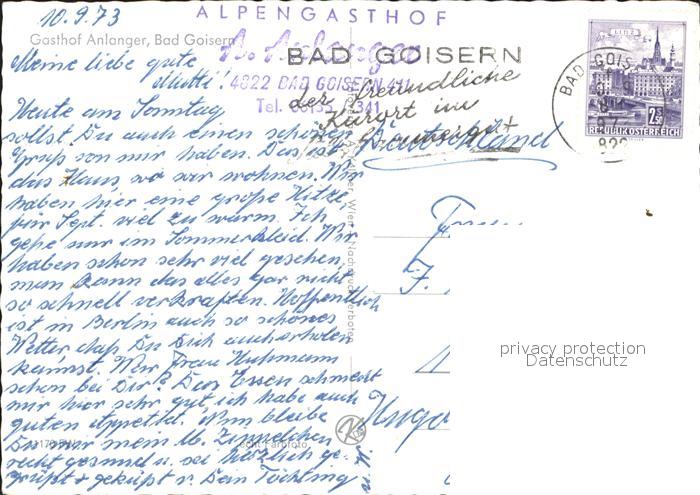 10.9.73
ALPENGASTHOF
Gasthof Anlanger, Bad Goisern
BAD GOISERN
4822 BAD GOISERN
Tel.
der freundliche
Kurort im
LINZ
BAD GOIS
2.50
REPUBLIK ÖSTERREICH
822
Meine liebe gute
Mutti!
Heute am Sonntag
sollst Du auch einen schönen
Gruß von mir haben. Das ist
das Haus, wo wir wohnen. Wir
haben hier eine große Hitze,
für Sept. viel zu warm. Ich
gehe nur im Sommerkleid. Wir
haben schon sehr viel gesehen,
man kann das alles gar nicht
so schnell verkraften. Hoffentlich
ist in Berlin auch so schönes
Wetter, daß Du Dich auch erholen
kannst. War Frau Huhmann
schon bei Dir? Das Essen schmeckt
mir hier sehr gut, ich habe auch
guten Appetit. Nun bleibe
Du mir mein lb.
recht gesund u. sei herzlich ge-
grüßt + geküßt v. Dein Töchting
Deutschland
Wien
Nachdruck verboten
echt Farbfoto
privacy protection
Datenschutz